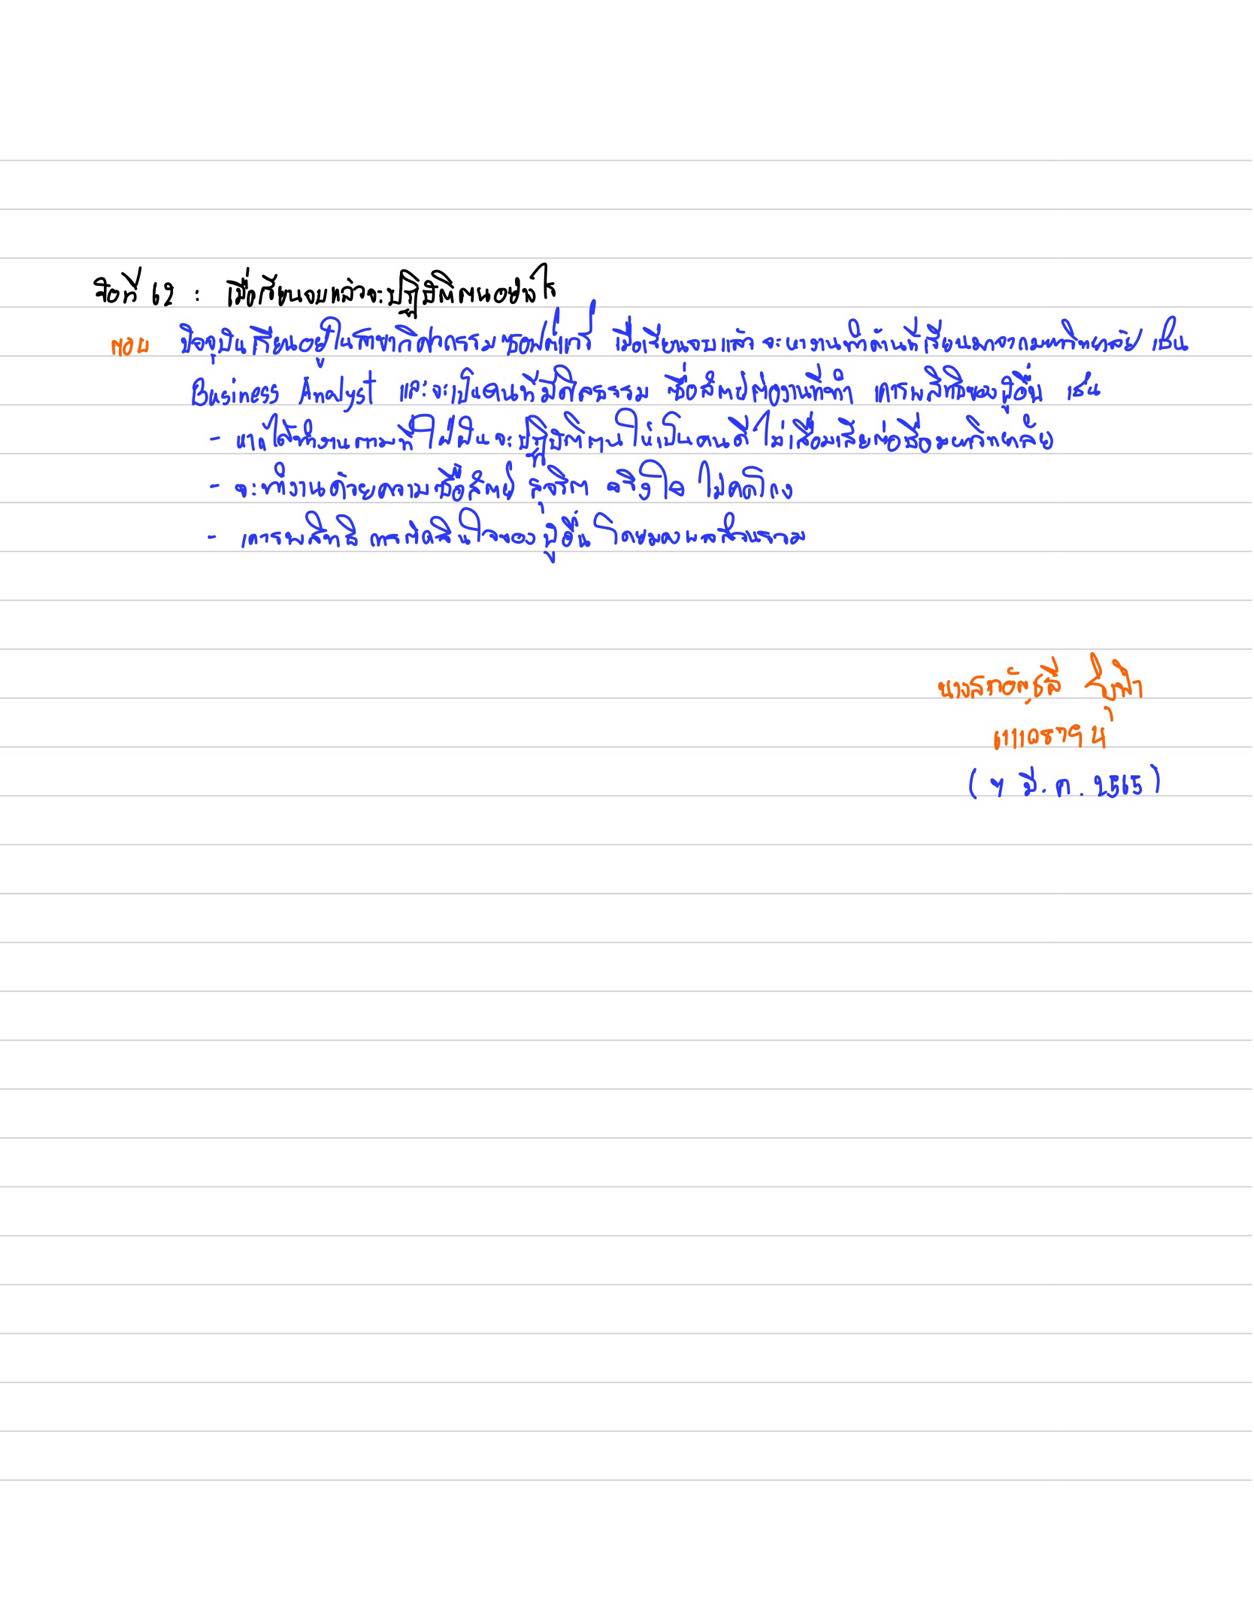 ข้อที่ 62 : เมื่อเรียนจบแล้วจะปฏิบัติตนอย่างไร
ตอบ ปัจจุบันเรียนอยู่ในสาขาวิศวกรรมซอฟต์แวร์ เมื่อเรียนจบแล้ว จะหางานทำด้านที่เรียนมาจากมหาวิทยาลัย เช่น
Business Analyst และจะเป็นคนที่มีศีลธรรม ซื่อสัตย์ต่องานที่ทำ เคารพสิทธิของผู้อื่น เช่น
- หากได้ทำงานตามที่ใฝ่ฝันจะปฏิบัติตนให้เป็นคนดี ไม่เสื่อมเสียต่อชื่อมหาวิทยาลัย
- จะทำงานด้วยความซื่อสัตย์ สุจริต จริงใจ ไม่คดโกง
- เคารพสิทธิ การตัดสินใจของผู้อื่น โดยมองผลส่วนรวม
นางสาว
(4 มี.ค. 2565)